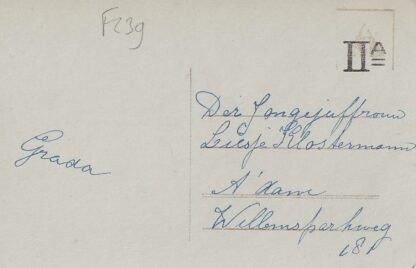 F239
IIA
Der Jongejuffrouw
Liesje Klostermann
A'dam
Willemsparkweg
181
Grada